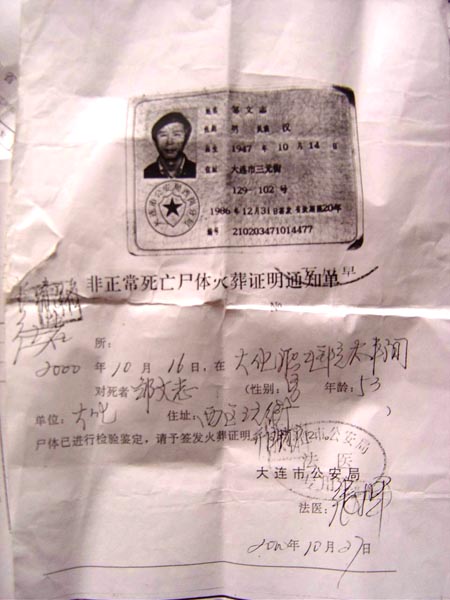 姓名 邹文志
性别 男 民族 汉
出生 1947 年 10 月 14 日
住址 大连市三元街
129-102号
1986 年 12月31日签发 有效期限20年
编号 210203471014477
非正常死亡尸体火葬证明通知单
No
所：
2000 年 10 月 16 日，在 大化
对死者 邹文志 （性别：男 年龄：53
单位：大化 住址：西区
尸体已进行检验鉴定，请予签发火葬证明
市公安局
法医
大连市公安局
法医：
年 10 月 27 日